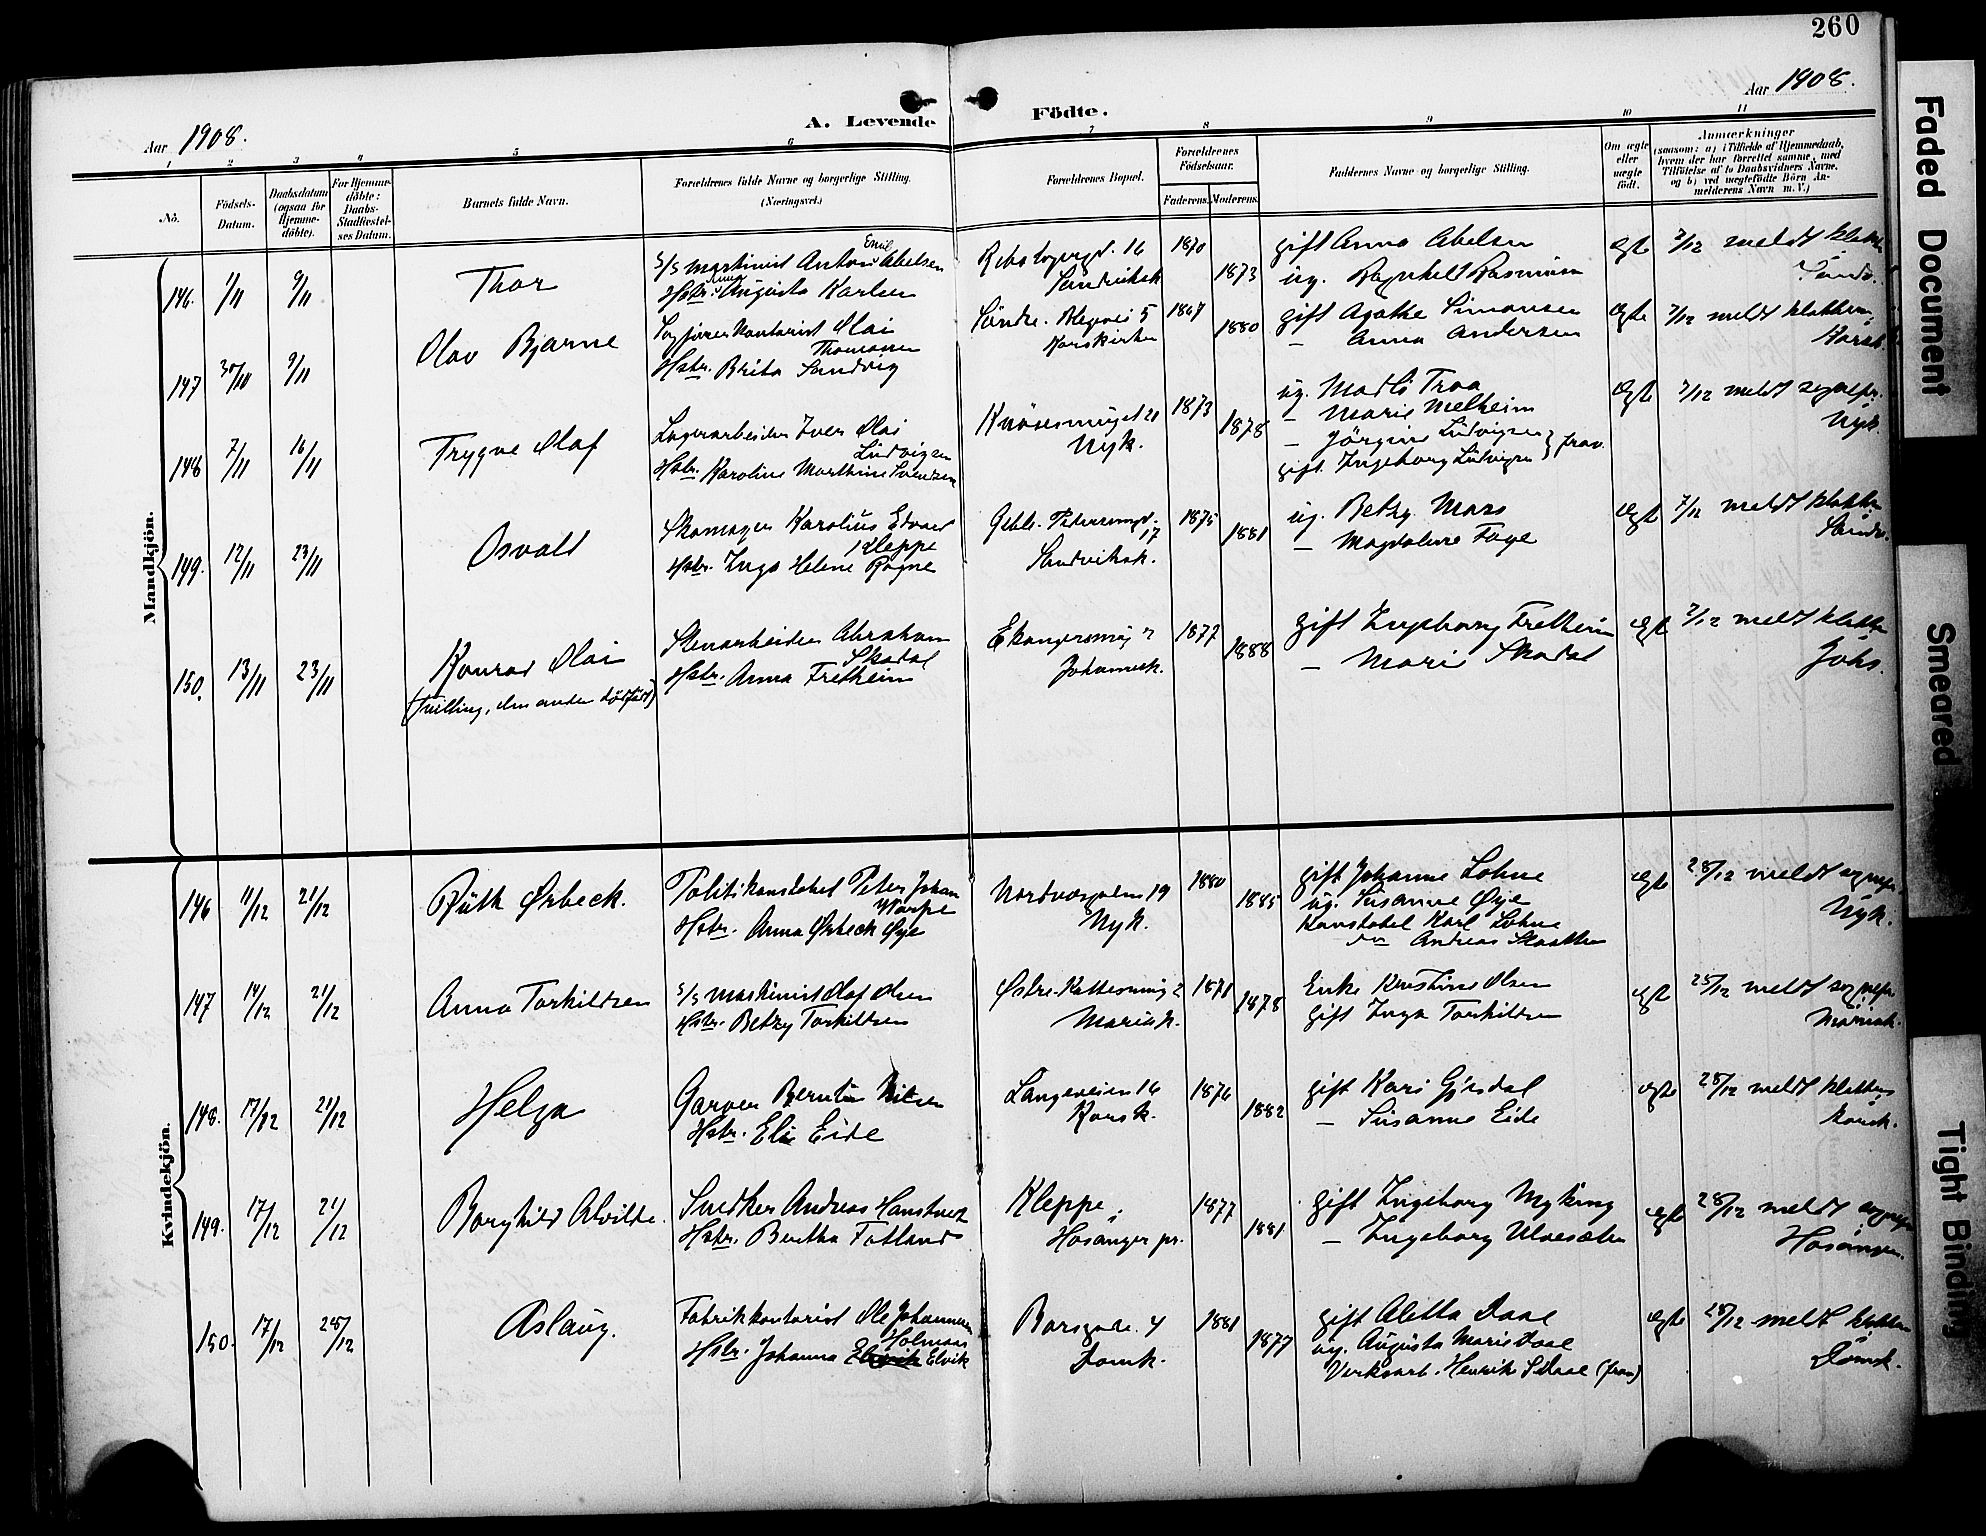 260
Aar 1908.
Aar 1908.
A. Levende Födte.
1 2 3 4 5 6 7 8 9 10 11
No.
Födsels-Datum.
Daabsdatum (ogsaa for Hjemme-döbte).
For Hjemme-döbte: Daabs-Stadfæstelses Datum.
Barnets fulde Navn.
Forældrenes fulde Navne og borgerlige Stilling. (Næringsvei.)
Forældrenes Bopæl.
Forældrenes Födselsaar.
Faderens.
Moderens.
Faddernes Navne og borgerlige Stilling.
Om ægte eller uægte födt.
Anmærkninger (saasom: a) i Tilfælde af Hjemmedaab, hvem der har forrettet samme, med Tilföielse af to Daabsvidners Navne, og b) ved uægtefödte Börn Anmelderens Navn m. V.)
Mandkjön.
146. 1/11 9/11
Thor
S/S maskinist Anton Emil Abelsen
Hstr. Anna Augusta Karlsen
16
Sandviksk
1870
1873
gift Anna Abelsen
ug. Ragnhild Rasmussen
ægte
7/12 meldt klokk.
Sandv.
147 30/10 9/11
Olav Bjarne
Sagförerkontorist Olai
Thomassen
Hstr. Brita Sandvig
Söndre. Blegvei 5
Korskirken
1867
1880
gift Agathe Simonsen
— Anna Andersen
ægte
7/12 meldt klokkeren
Korsk.
148 7/11 16/11
Trygve Olaf
Lagerarbeider Iver Olai
Ludvigsen
Hstr. Karoline Marthine Svendsen
Knösesmuget 21
Nyk.
1873
1878
ug. Madli Traa
— Marie Melheim
— Jörgine Ludvigsen } frav.
gift Ingeborg Ludvigsen
ægte
7/12 meldt sognepr.
Nyk.
149. 12/11 23/11
Osvald
Skomager Karolius Edvard
Kleppe
Hstr. Inga Helene Rogne
Gehb. Petersensgt.
17
Sandviksk.
1875
1881
ug. Betzy Mars
— Magdalene Faye
ægte
7/12 meldt klokk.
Sandv.
150. 13/11 23/11
Konrad Olai
(Tvilling, den anden dödfödt)
Stenarbeider Abraham
Skadal
Hstr. Anna Fretheim
Ekangersmug 7
Johannesk.
1877
1888
gift Ingeborg Fretheim
— Marie Skadal
ægte
7/12 meldt klokk.
Johs.
Kvindekjön.
146 11/12 21/12
Ruth Ørbeck.
Politikonstabel Peter Johan
Warpe
Hstr. Anna Ørbeck Øye
19
Nyk.
1880
1885
gift Johanne Lohne
ug. Susanne Øye
Konstabel Karl Lohne
do Andreas
ægte
28/12 meldt sognepr.
Nyk.
147 14/12 21/12
Anna Torkildsen
S/S maskinist Olaf Olsen
Hstr. Betzy Torkildsen
Østre Kattesmug 2
Mariak.
1878
Enke Kirstine Olsen
gift Inga Torkildsen
ægte
28/12 meldt sognepr.
Mariak.
148. 17/12 21/12
Helga
Garver Berntin Nilsen
Hstr. Eli Eide
Langeveien 16
Korsk.
1876
1882
gift Kari Gjesdal
— Susanne Eide
ægte
28/12 meldt klokker
Korsk.
149. 17/12 21/12
Borghild Alvilde.
Snedker Andreas Hanstveit
Hstr. Bertha Fotland
Kleppe,
Hosanger pr.
1877
1881
gift Ingeborg Myking
— Ingeborg Ulvesæter
ægte
28/12 meldt sognepr.
Hosanger.
150. 17/12 28/12
Aslaug.
Fabrikkontorist Ole Johannesen
Holman
Hstr. Johanna Elvik
Barsgade. 4
Domk.
1881
1877
gift Aletta Daae
ug. Augusta Marie Daae
Verksarb. Henrik S Daae (frav)
ægte
28/12 meldt klokker
Domk.
Faded Document
Smeared
Tight Binding